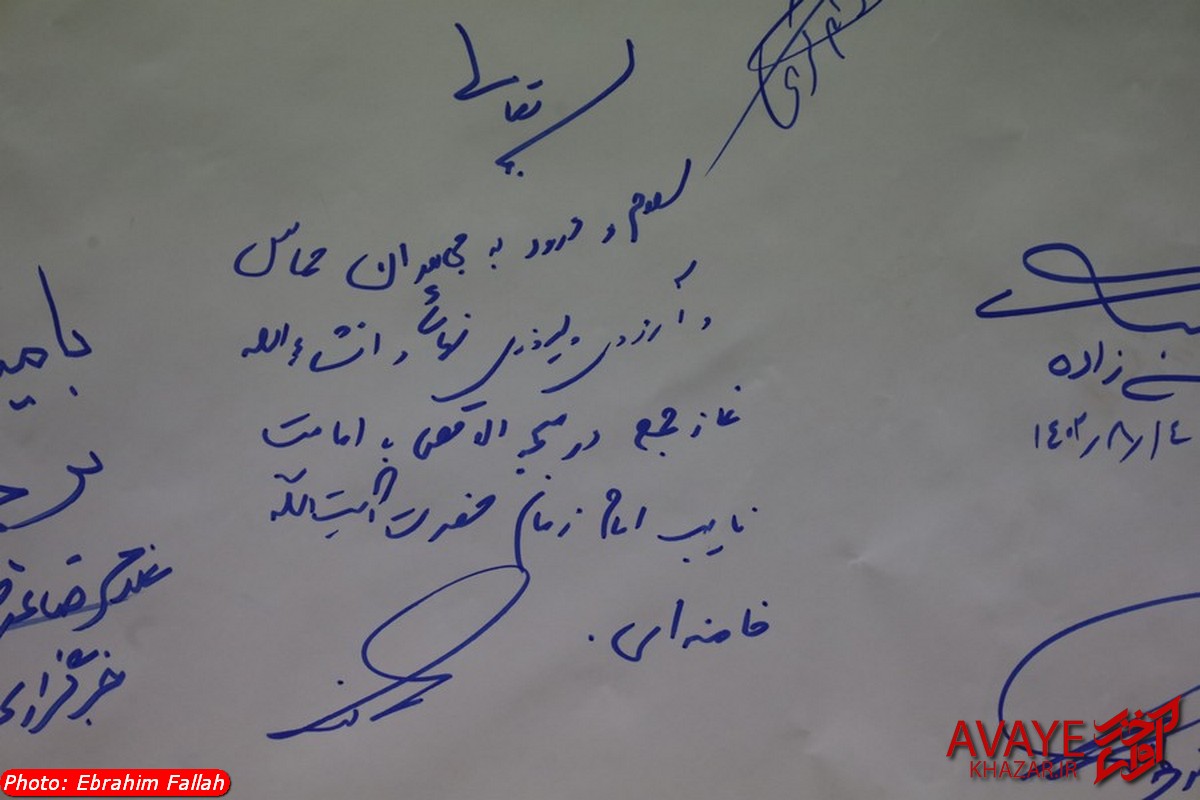 بسمه تعالی
سلام و درود به مجاهدان حماس
و آرزوی پیروزی نهائی و انشاءالله
نماز جمعه در مسجد الاقصی به امامت
نایب امام زمان حضرت آیت الله
خامنه‌ای.
زاده
۱۴۰۲/۸/۱۴
بامید
غلامرضا
خبرگزاری
Photo: Ebrahim Fallah
آوای خزر
AVAYE
KHAZAR.IR